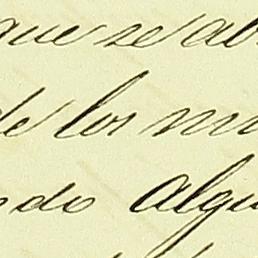 que se ab
de los mu
ndo algu